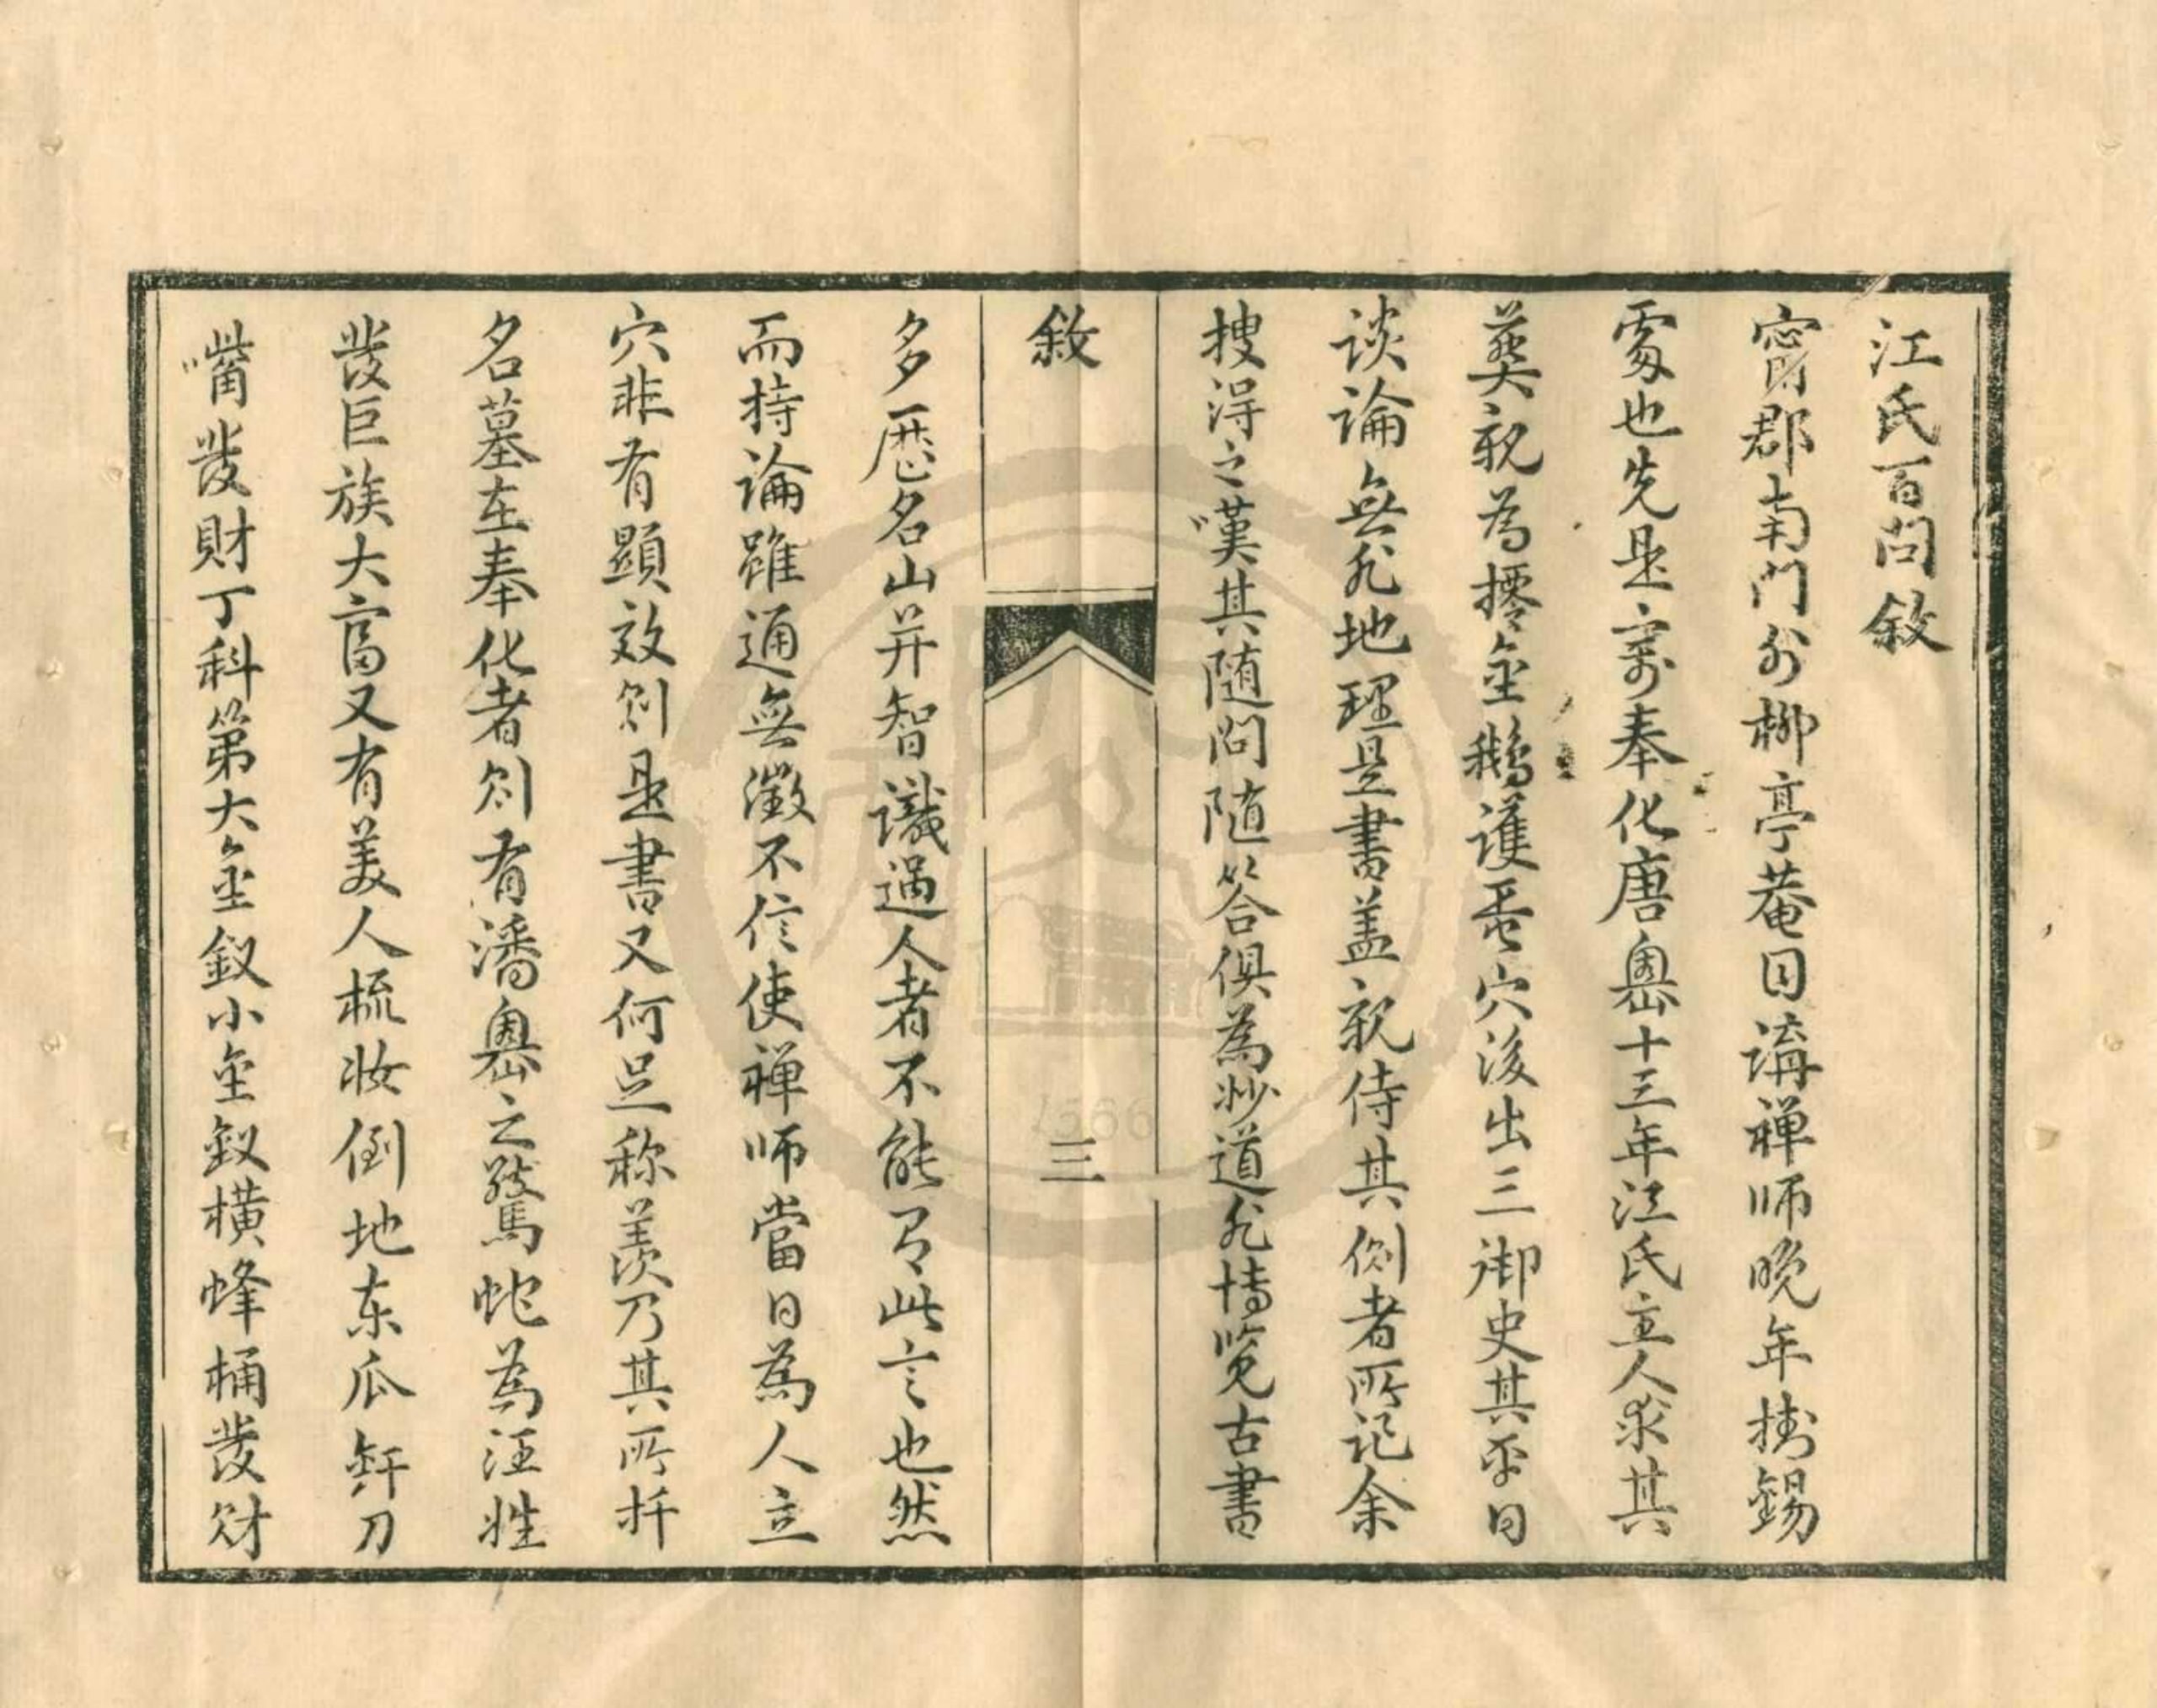 江氏百問敘
甯郡南門外柳亭菴目講禅师晚年掛錫
䖏也先是寄奉化唐嶴十三年江氏主人求其
葬親為擇金鵝護蛋穴後出三御史其平日
談論無非地理是書盖親侍其側者所記余
搜淂之嘆其随問随答俱為妙道非博览古書
敘
三
多歷名山并智識過人者不能有此言也然
而持論雖通無徵不信使禅师當日為人立
穴非有顯效則是書又何足称羡乃其所扦
名墓在奉化者則有潘嶴之驚蛇為汪姓
發巨族大富又有美人梳妆倒地东瓜虾刀
嘴發財丁科第大金釵小金釵横蜂桶發财